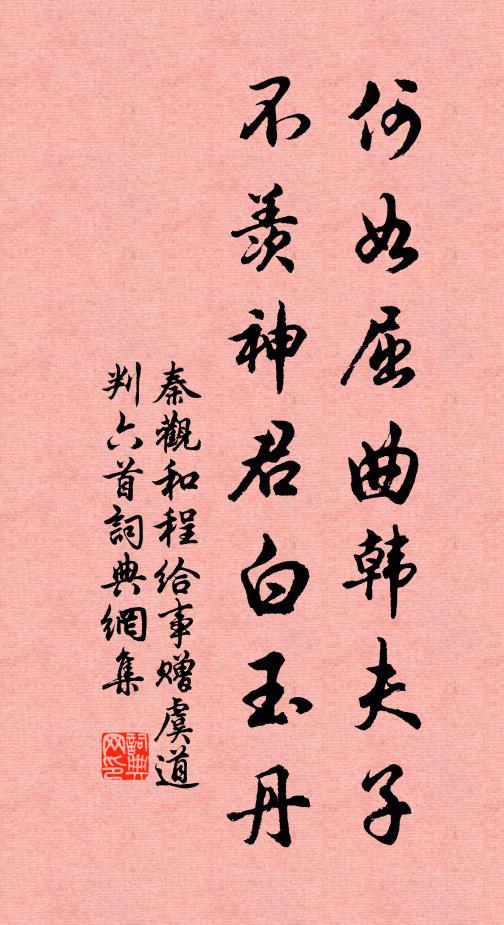 何如屈曲韩夫子
不羡神君白玉丹
秦觀和程给事赠虞道
判六首詞典網集
詞典
网印